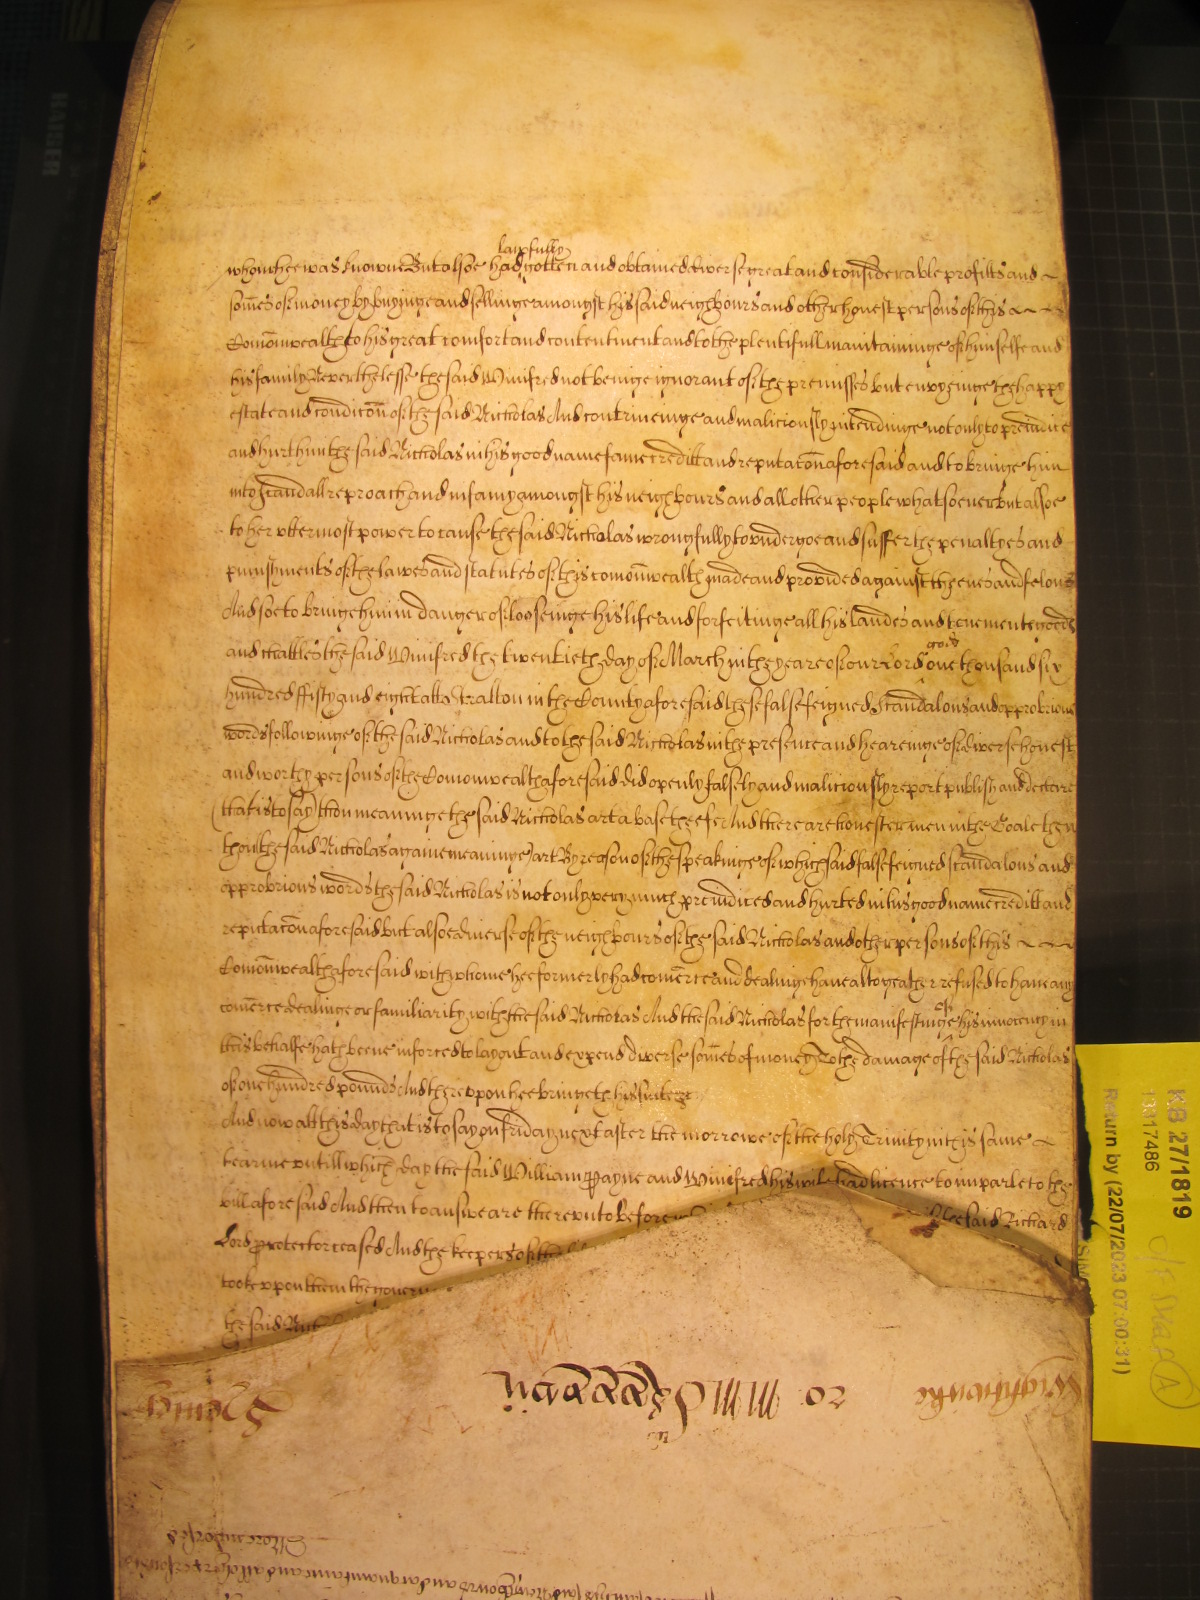 lawfully
whom hee was knowne But alsoe had gotten and obtained diverse great and considerable profitts and
som̄es of money by buyinge and sellinge amongst his said neighbours and other honest persons of this
Com̄onwealth to his great comfort and contentment and to the plentifull maintaininge of himselfe and
his family Neverthelesse the said Winifred not beinge ignorant of the premisses but envyeinge the happy
estate and condic̄on of the said Nicholas And contriveinge and maliciously intendinge not only to preiudice
and hurt him the said Nicholas in his good name fame creditt and reputac̄on aforesaid and to bringe him
into scandall reproach and infamy amongst his neighbours and all other people whatsoever But alsoe
to her vttermost power to cause the said Nicholas wrongfully to vndergoe and suffer the penaltyes and
punishments of the lawes and statutes of this com̄onwealth made and provided against theeves and felons
And soe to bringe him in danger of looseinge his life and forfeitinge all his landes and tenements goods
god
and chattles the said Winifred the twentieth day of March in the yeare of our Lord one thousand six
hundred ffifty and eight att Tratton in the County aforesaid these false feigned scandalous and opprobrious
words followinge of the said Nicholas and to the said Nicholas in the presence and heareinge of diverse honest
and worthy persons of the Com̄onwealth aforesaid did openly falsely and maliciously report publish and declare
(that is to say) thou meaninge the said Nicholas art a base theefe And there are honester men in the Goale then
thou the said Nicholas againe meaninge art By reason of the speakinge of which said false feigned scandalous and
opprobrious words the said Nicholas is not only very much preiudiced and hurted in his good name creditt and
reputac̄on aforesaid but alsoe diverse of the neighbours of the said Nicholas and other persons of this
Com̄onwealth aforesaid with whome hee formerly had com̄erce and dealinge have altogeather refused to have any
com̄erce dealinge or familiarity with the said Nicholas And the said Nicholas for the manifestinge of his innocency in
this behalfe hath beene inforced to lay out and expend diverse som̄es of money To the damage of the said Nicholas
of one hundred pounds And therevpon hee bringeth his suite &c
And now att this day that is to say on Friday next after the morrowe of the holy Trinity in this same
tearme vntill which day the said William Payne and Winifred his wife had licence to imparle to the
bill aforesaid And then to answeare therevnto before the said Richard
Lord Protector ceased And the keepers of the
tooke vpon them the govern
the said Nich
Wightwicke ro MMDCxxxxvii
KB 27/1819
13317486
Return by (22/07/2023 07:00:31)
A
KAISER